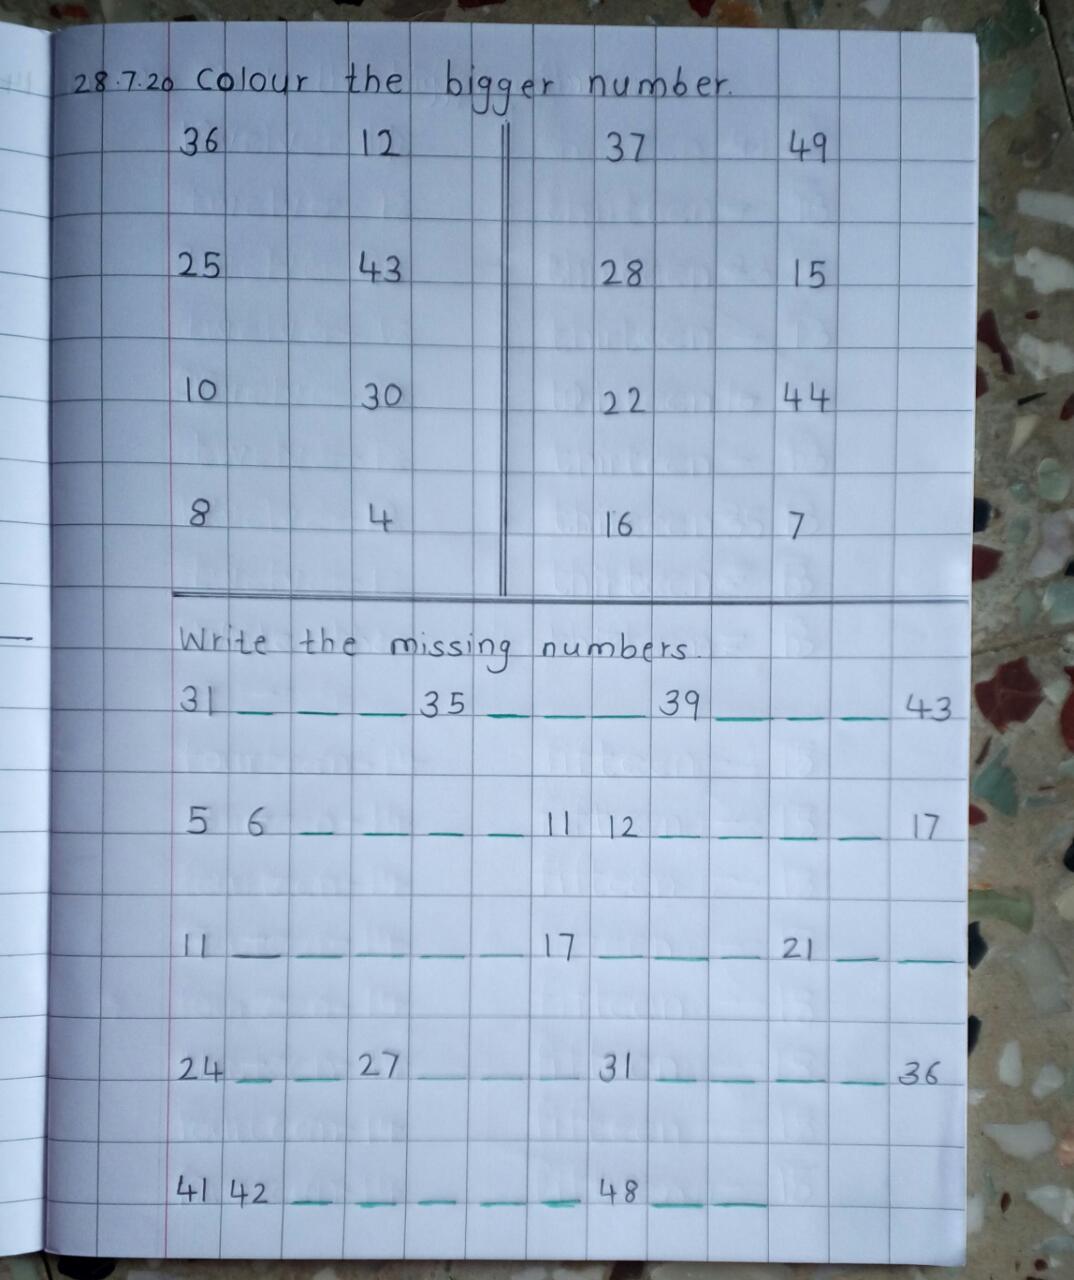 28.7.20 Colour the bigger number.
36 12 37 49
25 43 28 15
10 30 22 44
8 4 16 7
Write the missing numbers.
31 _ _ _ 35 _ _ _ 39 _ _ _ 43
5 6 _ _ _ _ 11 12 _ _ _ _ 17
11 _ _ _ _ _ 17 _ _ _ 21 _ _
24 _ _ 27 _ _ _ 31 _ _ _ _ 36
41 42 _ _ _ _ _ 48 _ _